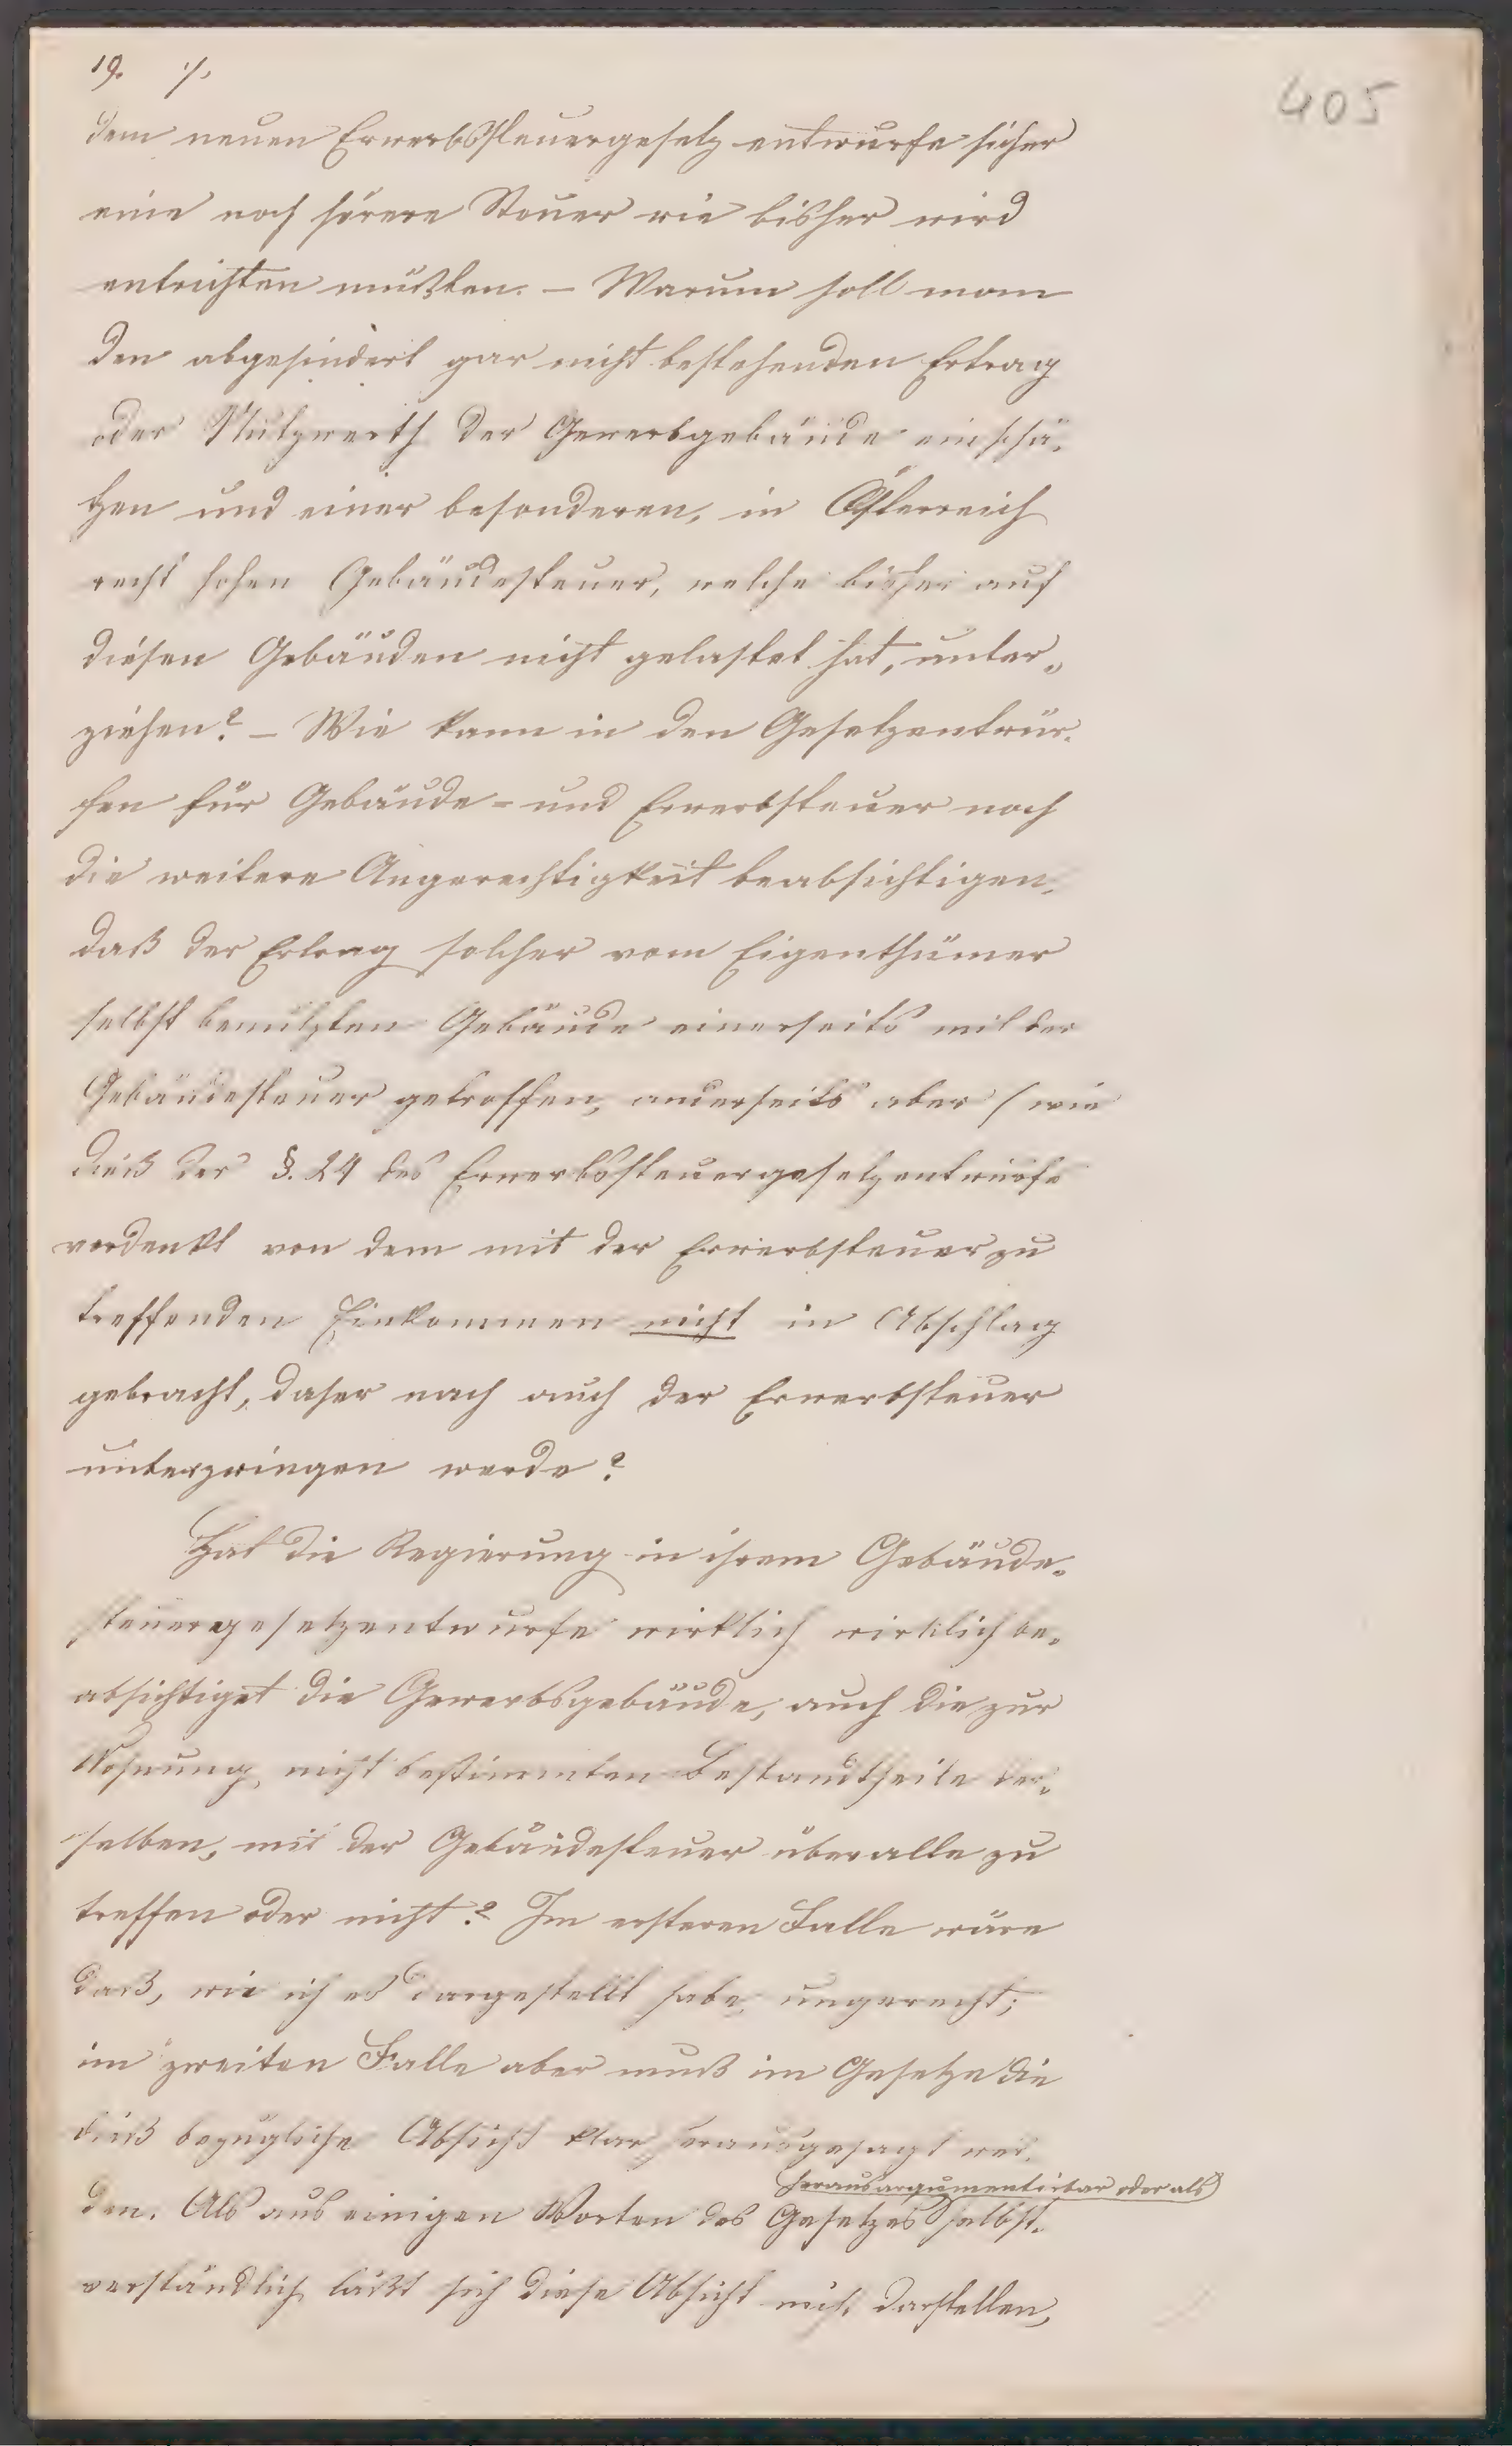 19. ·/.
405
dem neuen Erwerbssteuergesetz entwurfe sicher
eine noch hörere Steuer wie bisher wird
entrichten müßten. – Warum soll man
den abgesindert gar nicht bestehenden Ertrag
oder Nutzwerth der Gewerbgebäude einschä-
tzen und einer besonderen, in Österreich
recht hohen Gebäudesteuer, welche bisher auf
diesen Gebäuden nicht gelastet hat, unter-
ziehen? – Wie kann in den Gesetzentwür-
fen für Gebäude- und Erwerbsteuer noch
die weitere Ungerechtigkeit beabsichtigen,
daß der Ertrag solcher vom Eigenthümer
selbst benützten Gebäude einerseits mit der
Gebäudesteuer getroffen, anderseits aber (wie
dieß der §. 24 des Erwerbssteuergesetzentwurfs
verdenkt von dem mit der Erwerbsteuer zu
treffenden Einkommen nicht in Abschlag
gebracht, daher nach auch der Erwerbsteuer
unterzwingen werde?
Hat die Regierung in ihrem Gebäude-
steuergesetzentwurfe wirklich wirklich be-
absichtiget die Gewerbsgebäude, auch die zur
Wohnung nicht bestimmten Bestandtheile der-
selben, mit der Gebäudesteuer überalle zu
treffen oder nicht? Im ersteren Falle wäre
daß, wie ich es dargestellt habe, ungerecht;
im zweiten Falle aber muß im Gesetze die
dieß bezügliche Absicht klar herausgesagt wer-
herausargumentirbar oder als
den. Als aus einigen Worten des Gesetzes selbst-
verständlich läßt sich diese Absicht nicht darstellen,